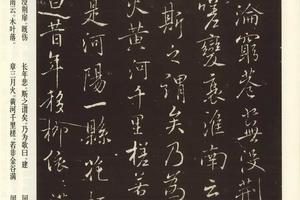 淪窮巷蕪沒荊
嗟變衰淮南云
斯之謂矣乃為
火黃河千里槎若
是河陽一縣花
曰昔年移柳依
没荆扉，既伤
南云：木叶落
长年悲，斯之谓矣，乃为歌曰：建
章三月火，黄河千里槎；若非金谷满